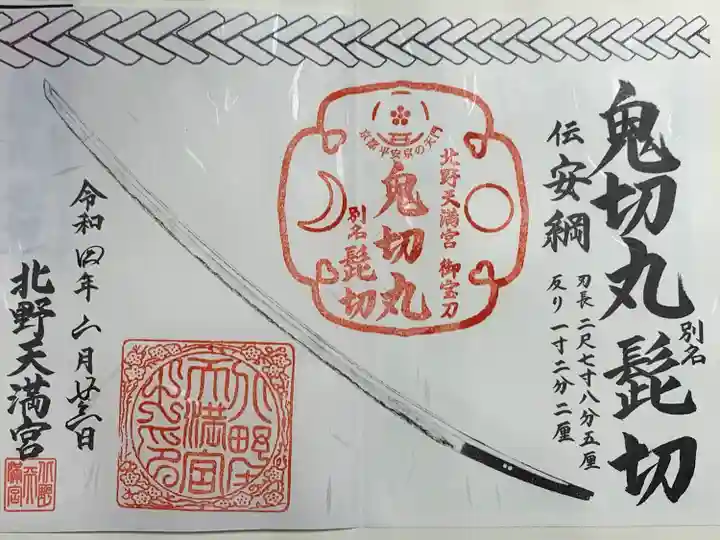 鬼切丸 別名 髭切
伝 安綱
刃長 二尺七寸八分五厘
反り 一寸二分二厘
京都平安京の天門
北野天満宮 御宝刀
鬼切丸
別名 髭切
令和四年六月廿三日
北野天満宮